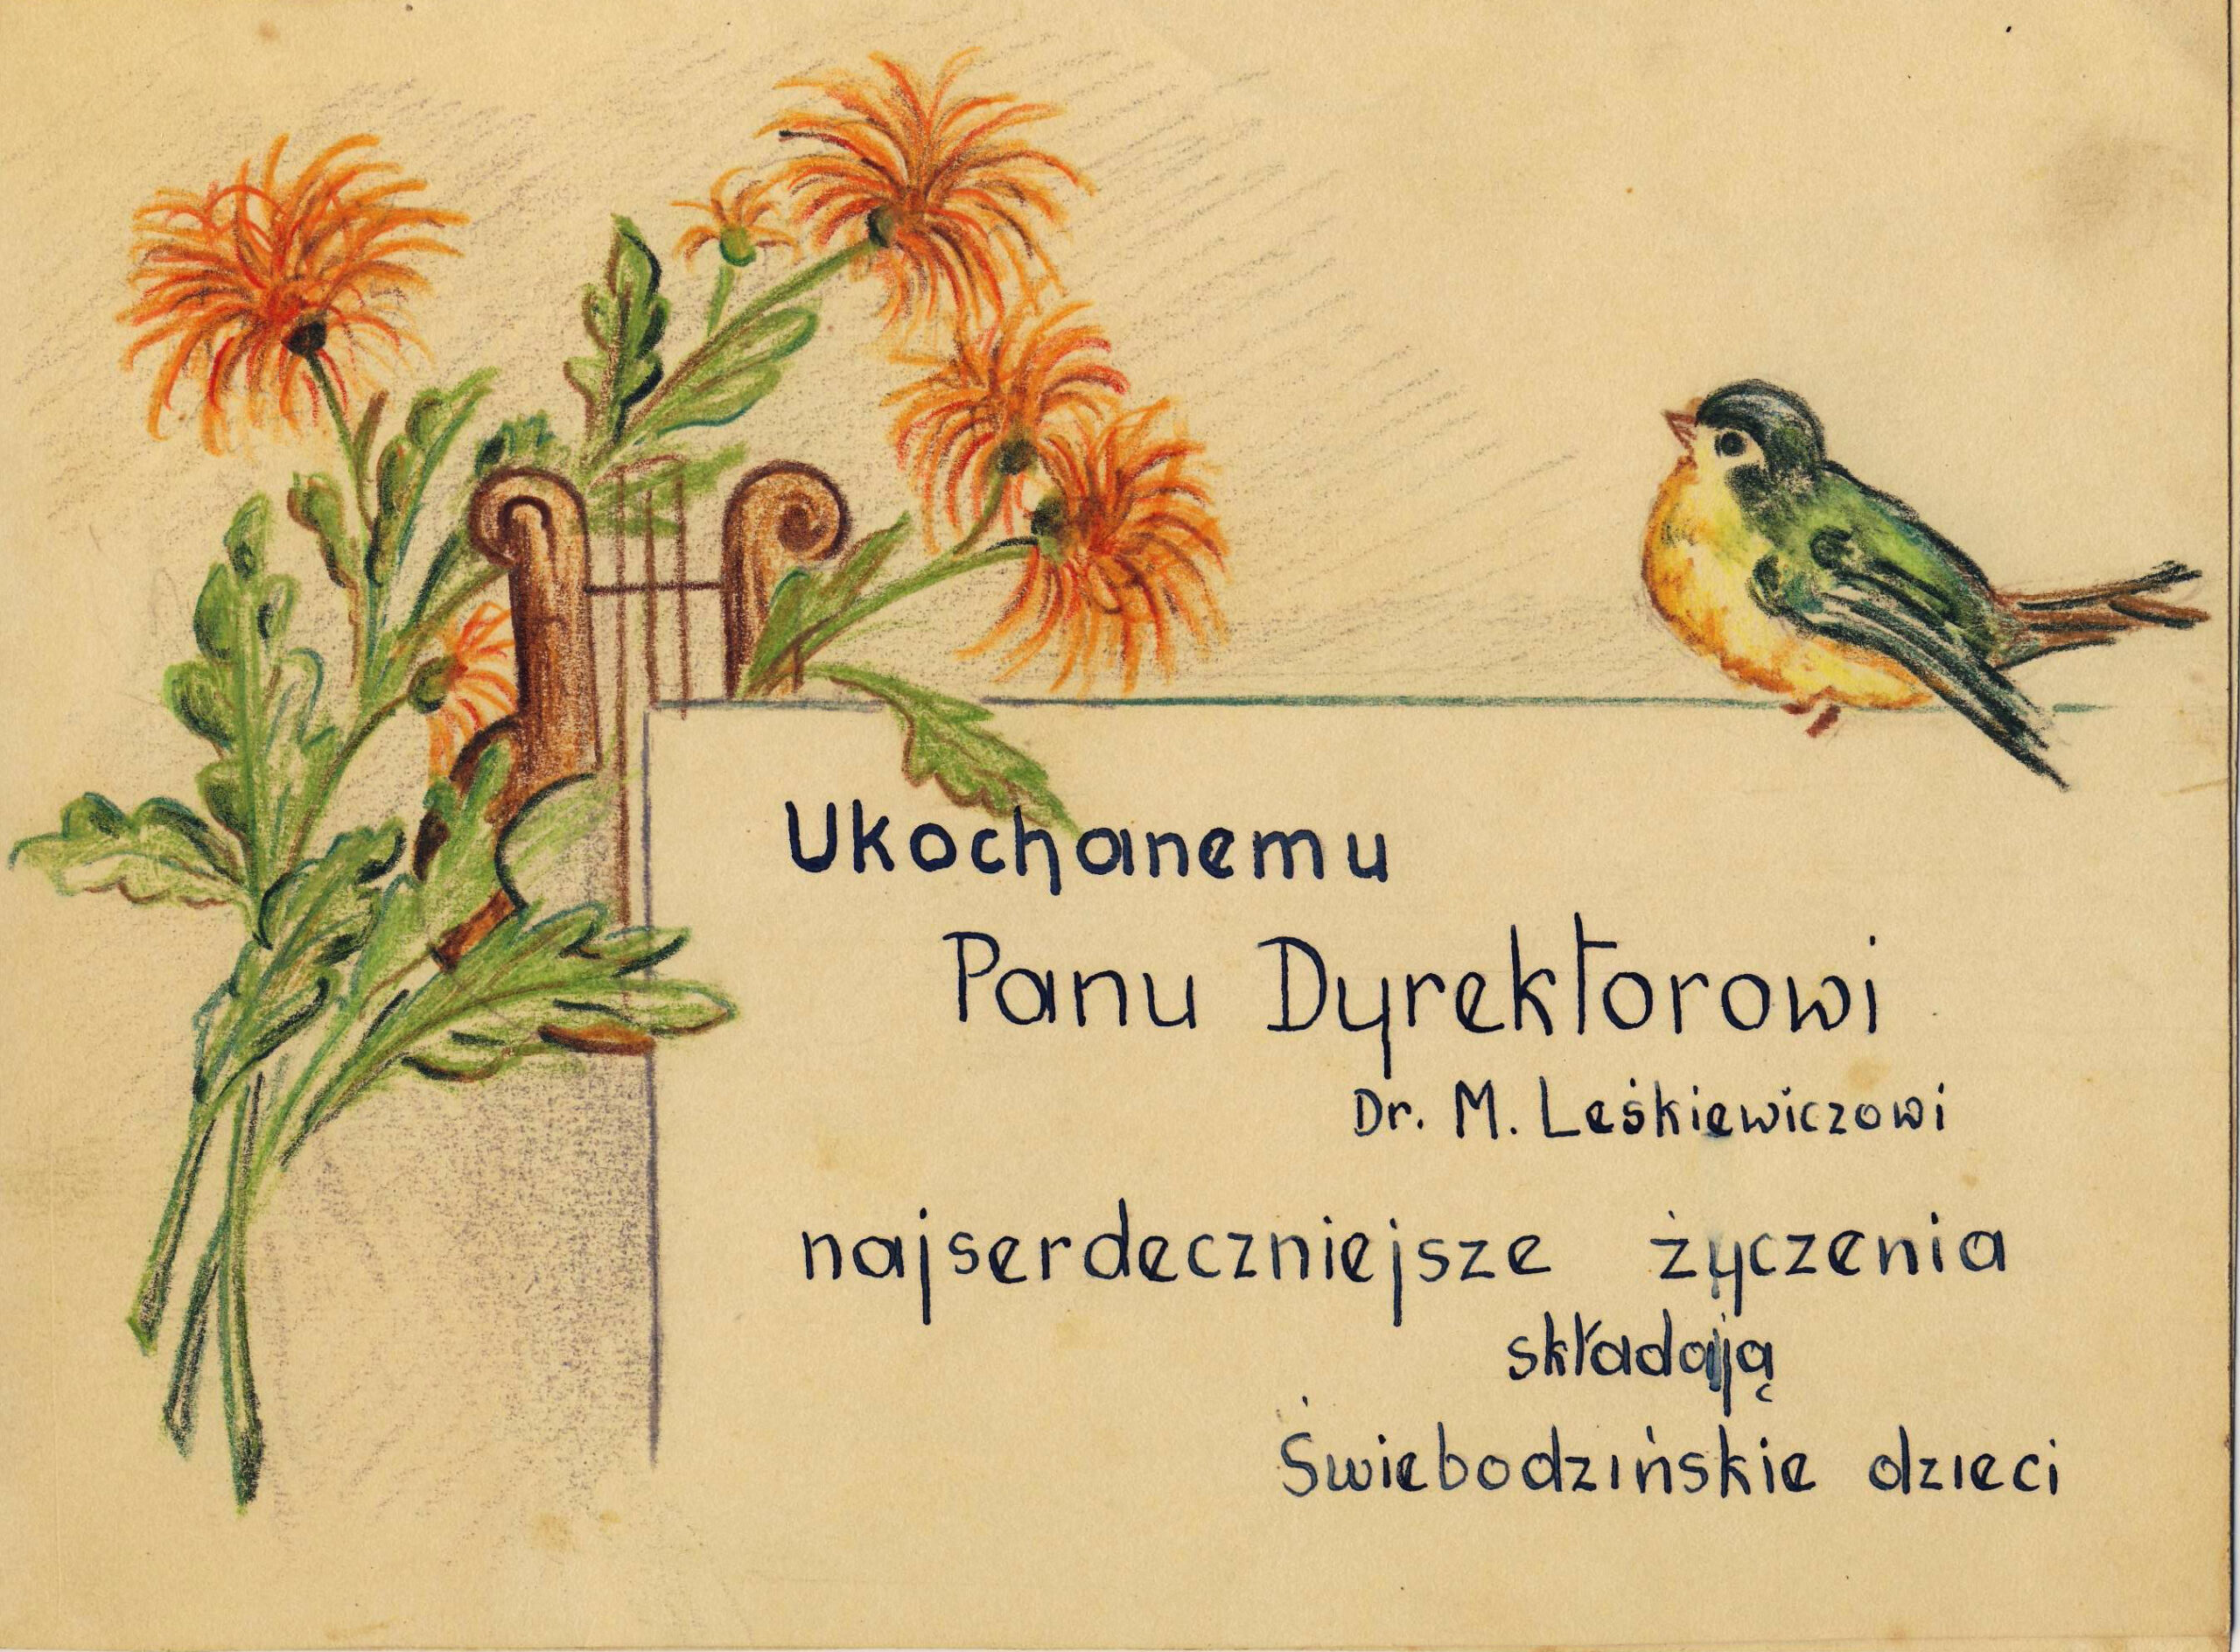 Ukochanemu
Panu Dyrektorowi
Dr. M. Leśkiewiczowi
najserdeczniejsze życzenia
składają
Świebodzińskie dzieci